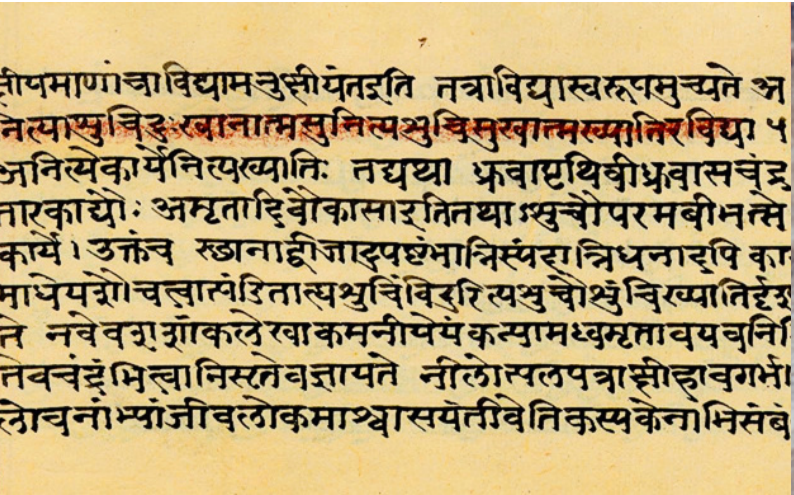 क्षीयमाणां चाविद्यामनुक्षीयंतइति तत्राविद्यास्वरूपमुच्यते अ
नित्याशुचिदुःखानात्मसुनित्यशुचिसुखात्मख्यातिरविद्या ५
अनित्येकार्येनित्यख्यातिः तद्यथा ध्रुवापृथिवीध्रुवासचंद्र
तारकाद्यौः अमृतादिवौकासाइतितथाऽसुचौपरमबीभत्से
कार्ये। उक्तंच स्छानाद्वीजादुपष्टंभान्निस्यंदान्निधनादपि का
माधेयशौचत्वात्पंडिताह्यशुचिंविदुरित्यशुचौशुचिख्यातिर्दृ
ते नवेवशशांकलेखाकमनीयेयंकन्यामध्वमृतावयवनि
तेवचंद्रंभित्वानिसृतेवज्ञायते नीलोत्पलपत्राक्षीहावगर्भा
लोचनाभ्यांजीवलोकमाश्वासयंतीवेतिकस्यकेनाभिसंबं